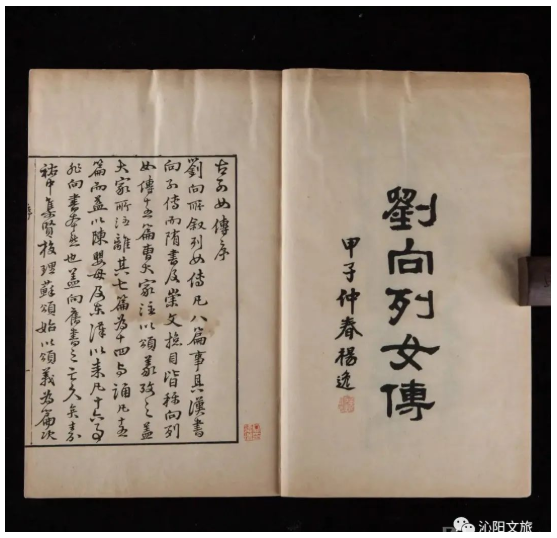 劉向列女傳
甲子仲春楊逸
古列女傳序
劉向所叙列女傳凡八篇事具漢書
向列傳而隋書及崇文總目皆稱向列
女傳十五篇曹大家注以頌義考之蓋
大家所注離其七篇為十四與頌凡十五
篇而益以陳嬰母及東漢以來凡十六事
非向書本然也蓋向舊書之亡久矣嘉
祐中集賢校理蘇頌始以頌義為篇次
序
沁阳文旅